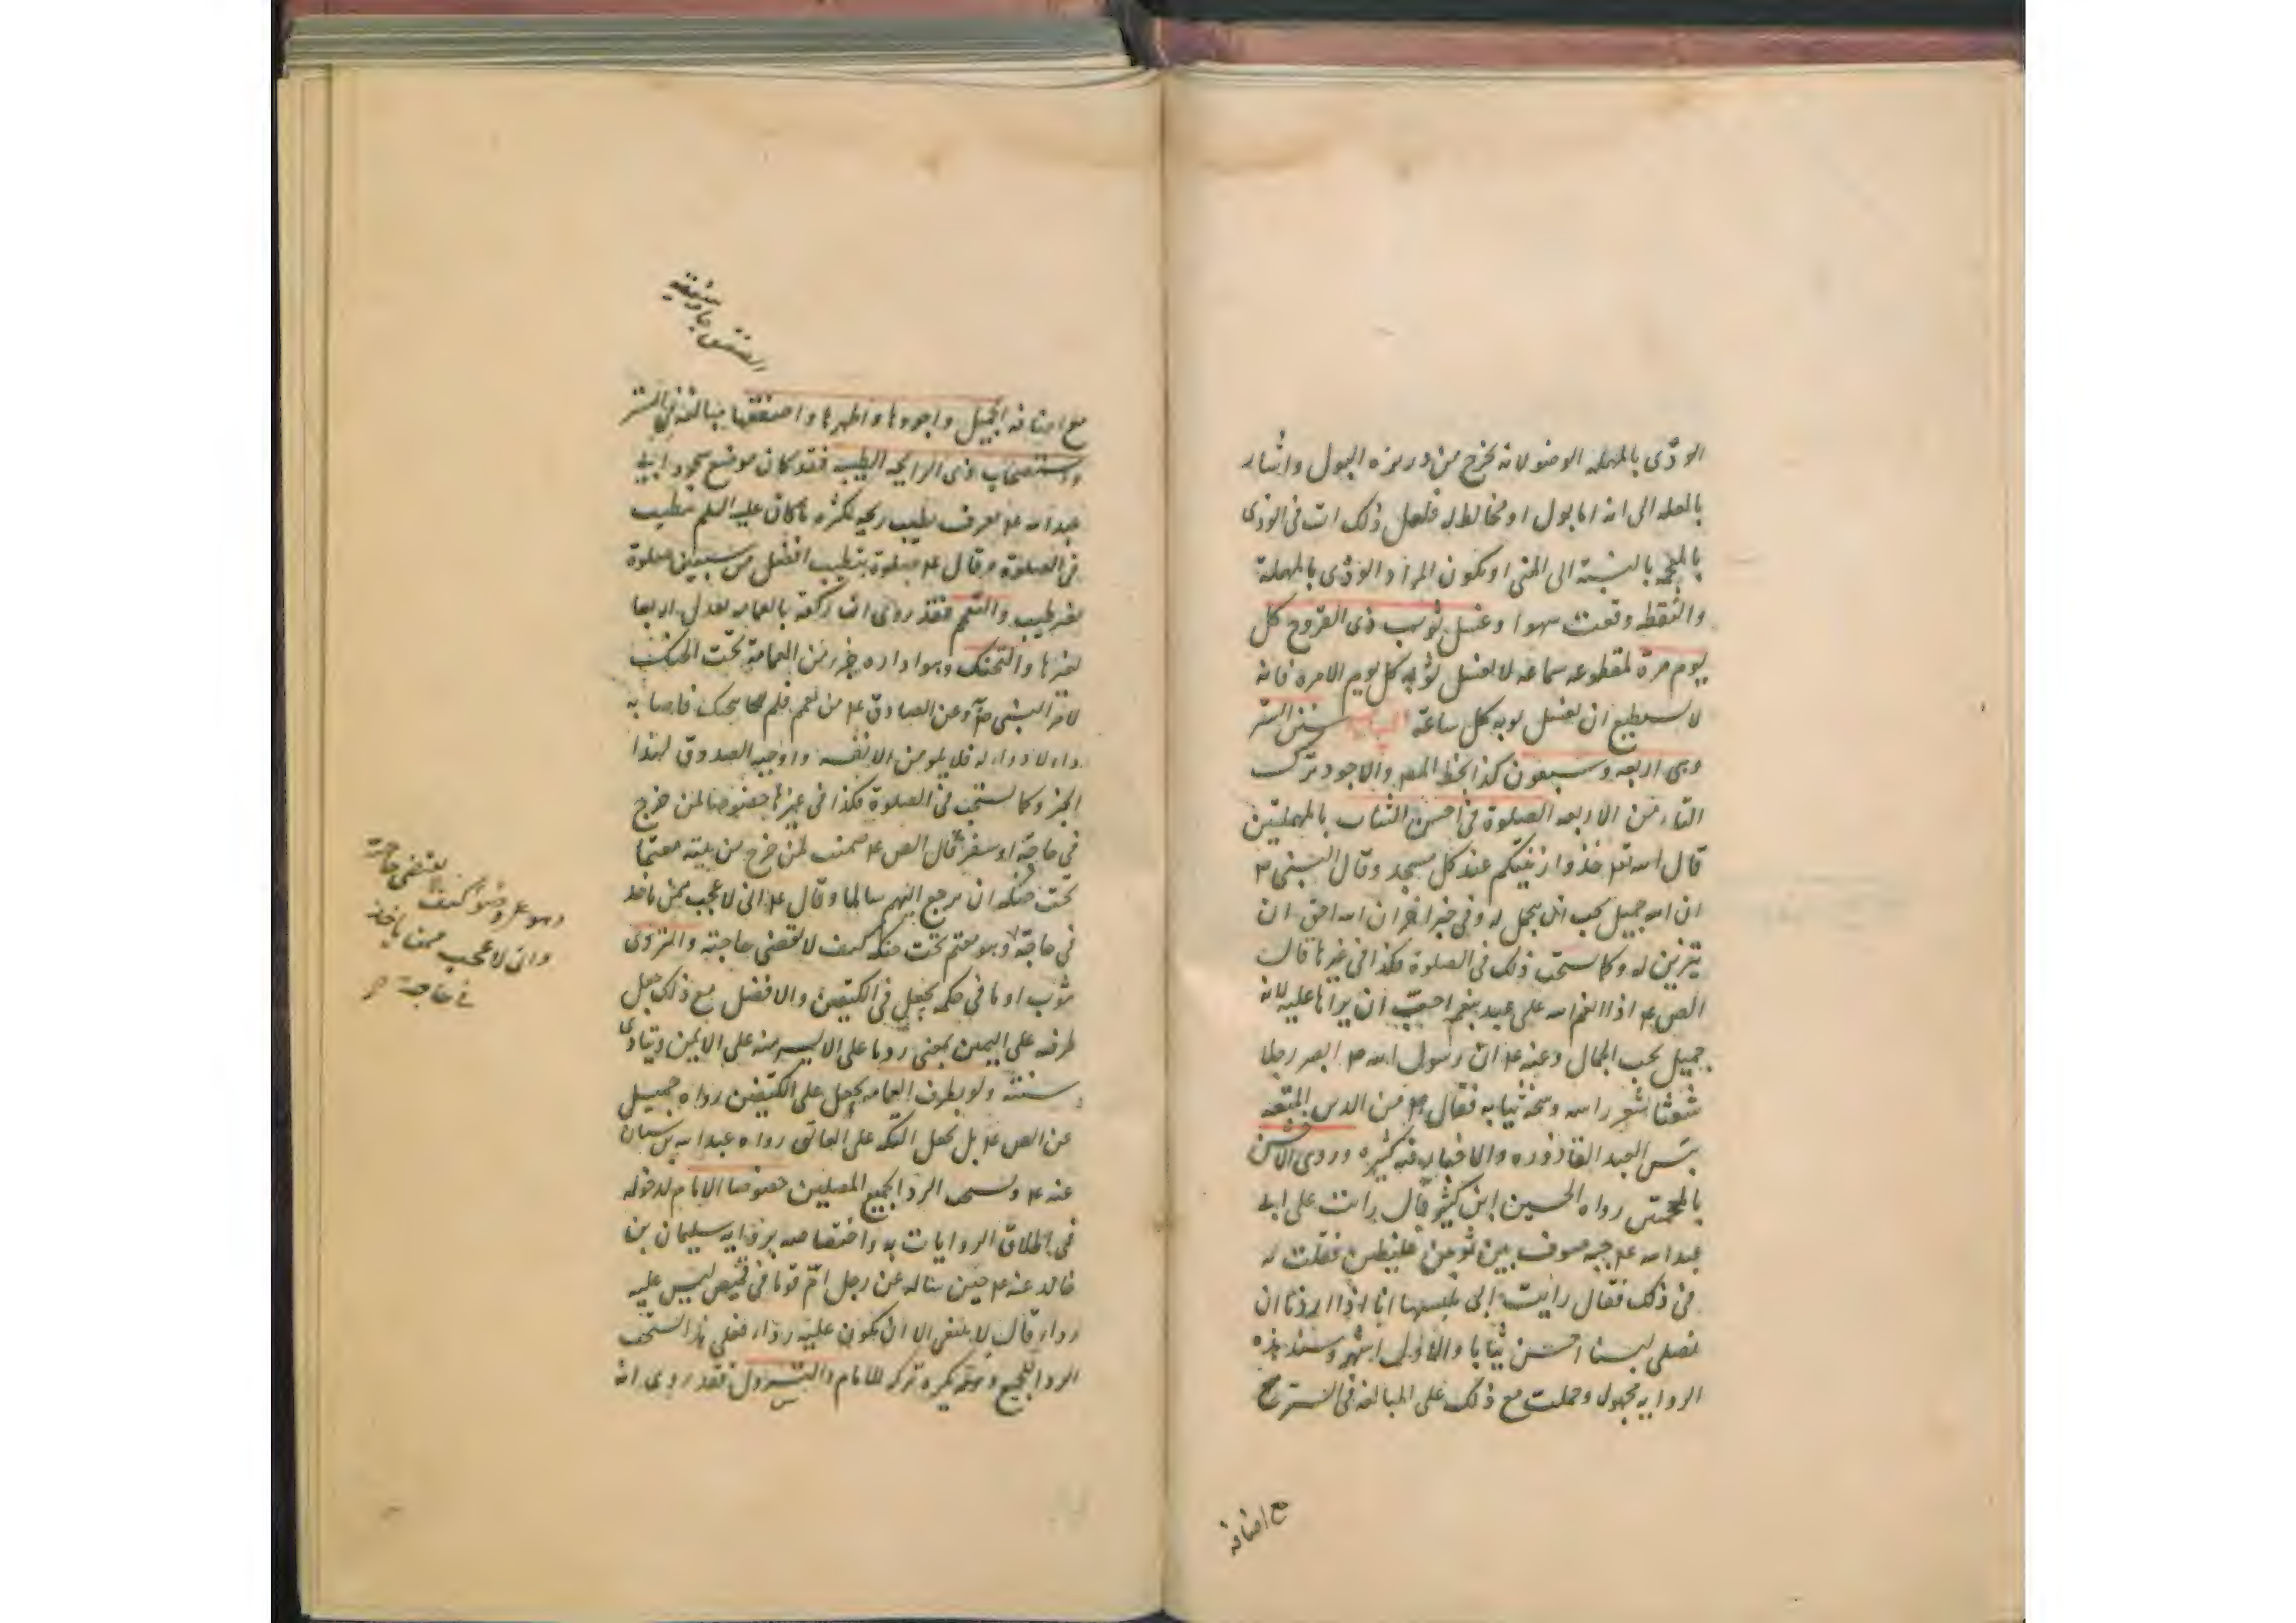 الودى بالمهملة الوضو لانه يخرج من دريزه البول واشار
بالعله الى انه اما بول او مخالط له فلعل ذلك ات فى الوذى
بالمعجمه بالنسبة الى المنى او يكون المراد الودى بالمهملة
والنقطه وقعت سهوا وغسل ثوب ذى القروح كل
يوم مرة لمقطوعه سماعه لا يغسل ثوبه كل يوم الا مرة فانه
لا يستطيع ان يغسل ثوبه كل ساعة سنن الستر
وهى اربعه وسبعون كذا بخط المص والاجود ترك
التاء من الاربعه الصلوة فى احسن الثياب بالمهملتين
قال الله تعه خذوا زينتكم عند كل مسجد وقال النبى ص
ان الله جميل يحب ان يتجمل له وفى خبر اخر ان الله احق ان
يتزين له وكما يستحب ذلك فى الصلوة فكذا فى غيرها قال
الص ع اذا انعم الله على عبد بنعم احب ان يراها عليه لانه
جميل يحب الجمال وعنه ع ان رسول الله ص ابصر رجلا
شعثا شعر راسه وسخة ثيابه فقال ص من الدين المتعه
بئس العبد القاذوره والاخبار فيه كثيره وروى الاخشن
بالمعجمتين رواه الحسين ابن كثير قال رايت على ابى
عبد الله ع جبه صوف بين ثوبين غليظين فقلت له
فى ذلك فقال رايت ابى يلبسها انا اذا اردنا ان
نصلى لبسنا اخشن ثيابا والاولى اشهر وسند هذه
الروايه مجهول وحملت مع ذلك على المبالغه فى الستر مع
مع اضافه
الصفيق
مع اضافه الجميل واجودها واطهرها واصفقها مبالغه فى الستر
واستصحاب ذى الرايحه الطيبه فقد كان موضع سجود ابى
عبد الله ع يعرف بطيب ريحه لكثره ما كان عليه السلم يتطيب
فى الصلوة وقال ع صلوة بتطيب افضل من سبعين صلوة
بغير طيب والتعمم فقد روى ان ركعة بالعمامه تعدل اربعا
بغيرها والتحنك وهو اداره جزء من العمامة تحت الحنك
لامر النبى ص وعن الصادق ع من تعمم فلم يتحنك فاصابه
داء لا دواء له فلا يلومن الا نفسه واوجبه الصدوق لهذا
الخبر وكما يستحب فى الصلوة فكذا فى غيرها خصوصا لمن خرج
فى حاجة او سفر قال الص ع ضمنت لمن خرج من بيته معتما
تحت حنكه ان يرجع اليهم سالما وقال ع انى لاعجب ممن ياخذ
فى حاجة وهو معتم تحت حنكه كيف لا تقضى حاجته والتردى
بثوب او ما فى حكمه يجعل فى الكتفين والافضل مع ذلك جعل
طرفه على اليمين بمعنى رد ما على الايسر منه على الايمن ويتادى
سنته ولو بطرف العمامه يجعل على الكتفين رواه جميل
عن الص ع بل يجعل التكه على العاتق رواه عبد الله بن سنان
عنه ع ويستحب الردا لجميع المصلين خصوصا الامام لدخوله
فى اطلاق الروايات به واختصاصه برواية سليمان بن
خالد عنه ع حين ساله عن رجل ام قوما فى قميص ليس عليه
رداء قال لا ينبغى الا ان يكون عليه رداء فعلى هذا يستحب
الردا للجميع ويكره تركه للامام والتسرول فقد روى انه
وهو على وضو كيف لا تقضى حاجته
وانى لاعجب ممن ياخذ
فى حاجة